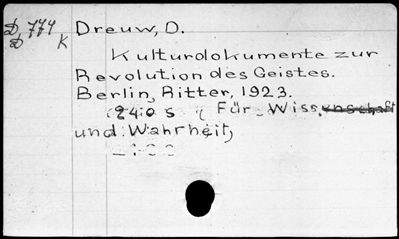 D 774 Dreuw, D.
D K
Kulturdokumente zur
Revolution des Geistes.
Berlin, Ritter, 1923.
240 S. (Für Wissenschaft
und Wahrheit,